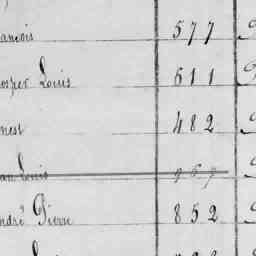 ançois 577
osper Louis 611
nest 482
ean Louis 967
ndré Pierre 852